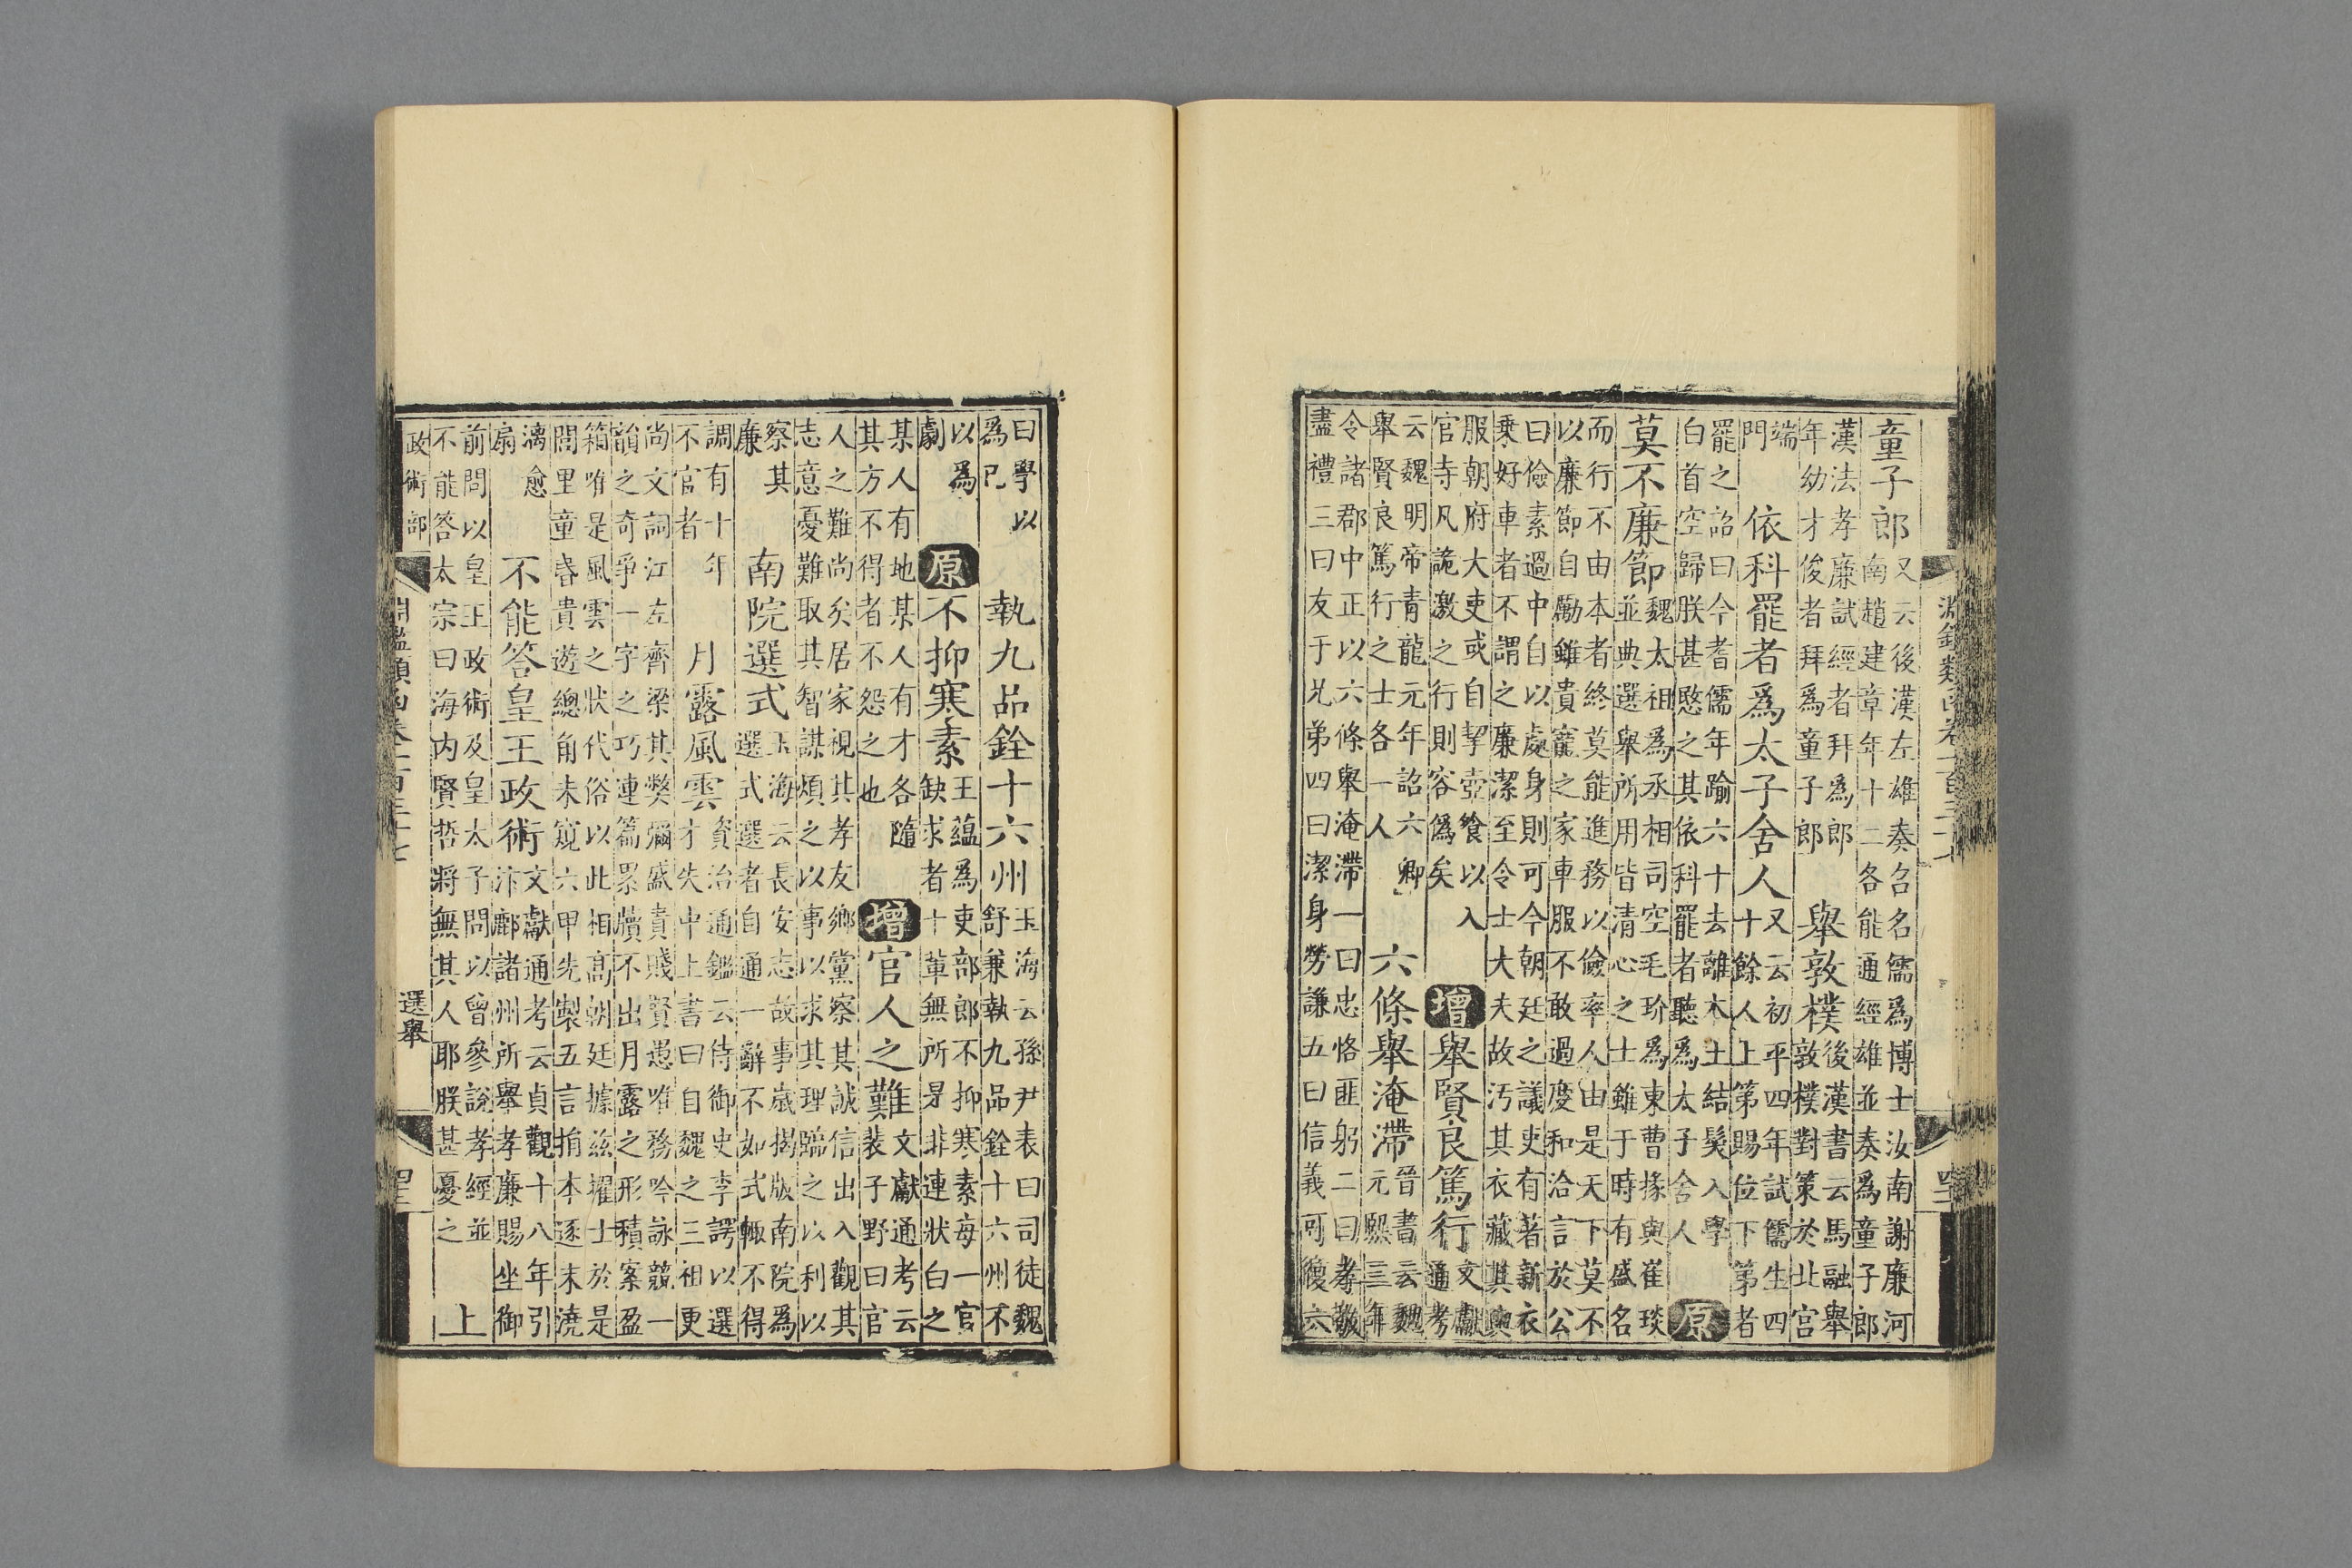 童子郎
又云後漢左雄奏召名儒爲博士汝南謝廉河
南趙建章年十二各能通經雄並奏爲童子郎
漢法孝廉試經者拜爲郎
年幼才俊者拜爲童子郎
舉敦樸
後漢書云馬融舉
敦樸對策於北宮
端
門
依科罷者爲太子舍人
又云初平四年試儒生四
十餘人上第賜位下第者
罷之詔曰今耆儒年踰六十去離本土結髮入學
白首空歸朕甚愍之其依科罷者聽爲太子舍人
原
莫不廉節
魏太祖爲丞相司空毛玠爲東曹掾與崔琰
並典選舉所用皆清心之士雖于時有盛名
而行不由本者終莫能進務以儉率人由是天下莫不
以廉節自勵雖貴寵之家車服不敢過度和洽言於公
曰儉素過中自以處身則可今朝廷之議吏有著新衣
乗好車者不謂之廉潔至令士大夫故汚其衣藏其輿
服朝府大吏或自挈壺飧以入
官寺凡詭激之行則容僞矣
增
舉賢良篤行
文獻
通考
云魏明帝青龍元年詔六卿
舉賢良篤行之士各一人
六條舉淹滯
晉書云魏
元熙三年
令諸郡中正以六條舉淹滯一曰忠恪匪躬二曰孝敬
盡禮三曰友于兄弟四曰潔身勞謙五曰信義可復六
曰學以
爲己
執九品銓十六州
玉海云孫尹表曰司徒魏
舒兼執九品銓十六州不
以爲
劇
原
不抑寒素
王蘊爲吏部郎不抑寒素每一官
缺求者十輩無所是非連狀白之
某人有地某人有才各隨
其方不得者不怨之也
增
官人之難
文獻通考云
裴子野曰官
人之難尚矣居家視其孝友鄉黨察其誠信出入觀其
志意憂難取其智謀煩之以事以求其理臨之以利以
察其
廉
南院選式
玉海云長安志故事歲揭版南院爲
選式選者自通一辭不如式輒不得
調有十年
不官者
月露風雲
資治通鑑云侍御史李諤以選
才失中上書曰自魏之三祖更
尚文詞江左齊梁其弊彌盛貴賤賢愚唯務吟詠競一
韻之奇爭一字之巧連篇累牘不出月露之形積案盈
箱唯是風雲之狀代俗以此相高朝廷據茲擢士於是
閭里童昏貴遊總角未窺六甲先製五言捐本逐末澆
漓愈
扇
不能答皇王政術
文獻通考云貞觀十八年引
汴鄜諸州所舉孝廉賜坐御
前問以皇王政術及皇太子問以曾參說孝經並
不能答太宗曰海内賢哲將無其人耶朕甚憂之
上
政術部
淵鑑類函卷一百三十七
選舉